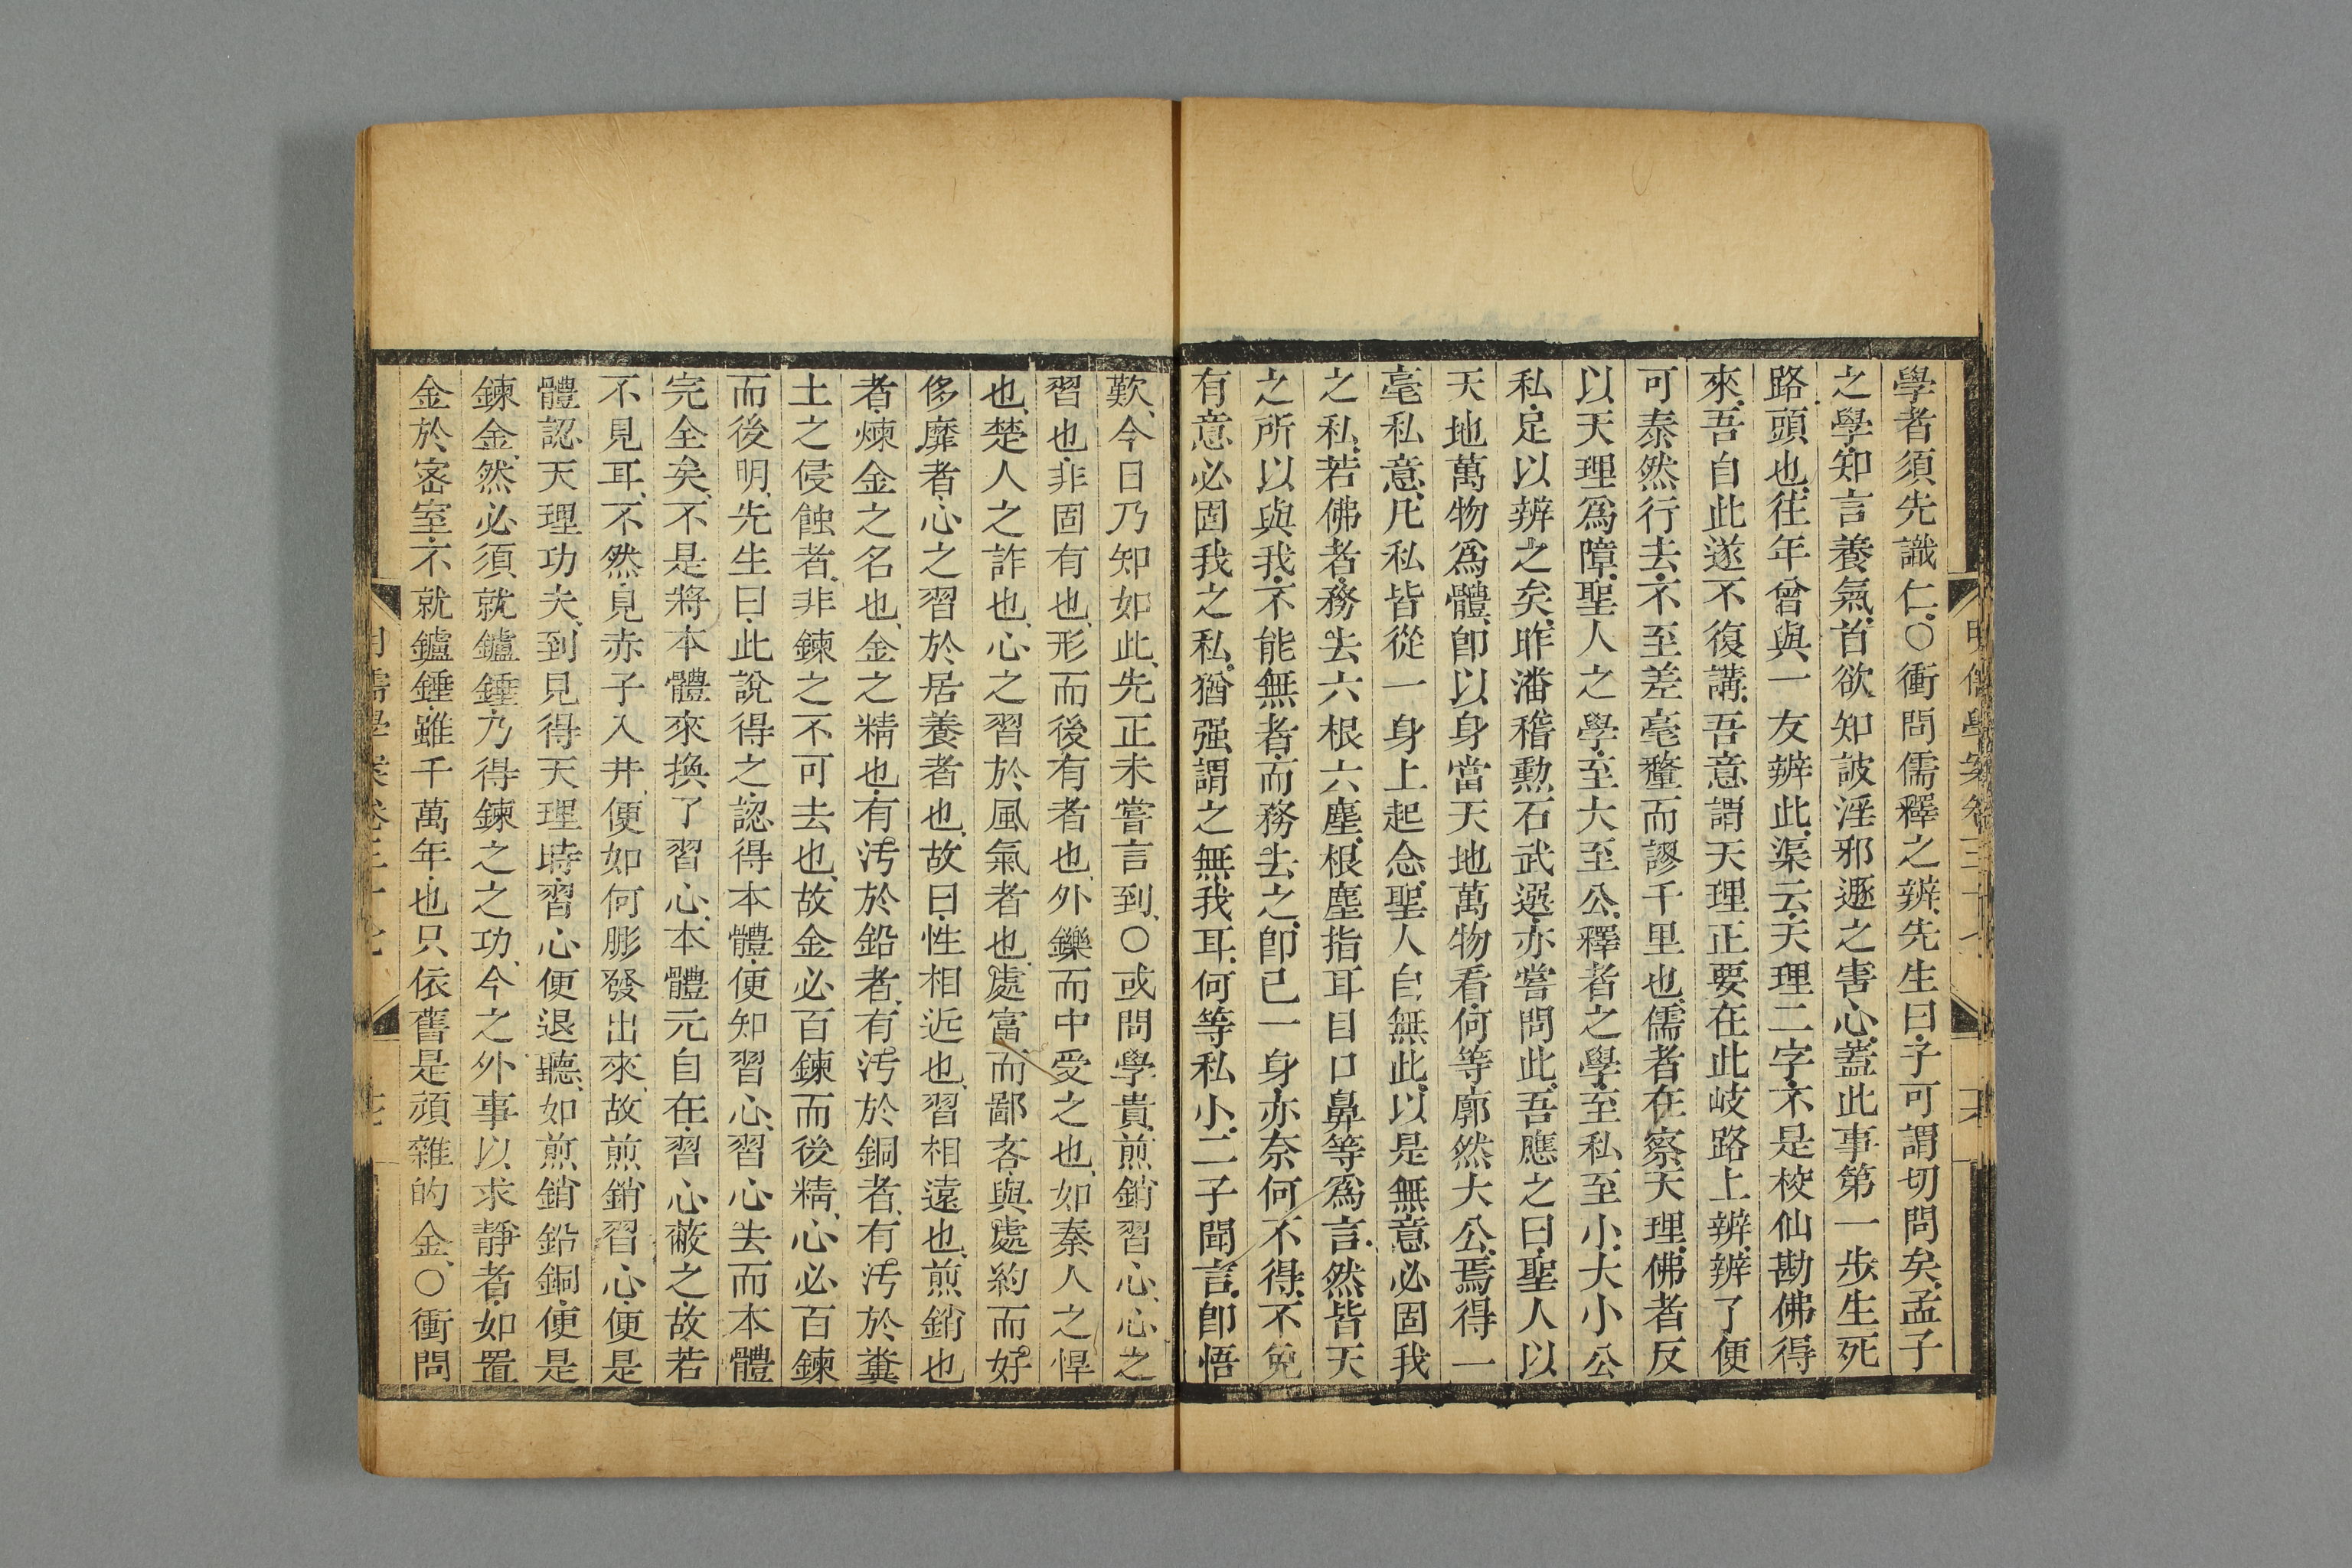 學者須先識仁、○衝問儒釋之辨、先生曰、子可謂切問矣、孟子
之學、知言養氣、首欲知詖淫邪遁之害心、蓋此事第一步生死
路頭也、往年曾與一友辨此、渠云、天理二字、不是校仙勘佛得
來、吾自此遂不復講、吾意謂天理正要在此岐路上辨、辨了便
可泰然行去、不至差毫釐而謬千里也、儒者在察天理、佛者反
以天理爲障、聖人之學、至大至公、釋者之學、至私至小、大小公
私、足以辨之矣、昨潘稽勳石武選、亦嘗問此、吾應之曰、聖人以
天地萬物爲體、卽以身當天地萬物看、何等廓然大公、焉得一
毫私意、凡私皆從一身上起念、聖人自無此、以是無意必固我
之私、若佛者、務去六根六塵、根塵指耳目口鼻等爲言、然皆天
之所以與我、不能無者、而務去之、卽己一身、亦奈何不得、不免
有意必固我之私、猶强謂之無我耳、何等私小、二子聞言、卽悟
歎、今日乃知如此、先正未嘗言到、○或問學貴煎銷習心、心之
習也、非固有也、形而後有者也、外鑠而中受之也、如秦人之悍
也、楚人之詐也、心之習於風氣者也、處富而鄙吝、與處約而好
侈靡者、心之習於居養者也、故曰、性相近也、習相遠也、煎銷也
者、煉金之名也、金之精也、有汚於鉛者、有汚於銅者、有汚於糞
土之侵蝕者、非鍊之不可去也、故金必百鍊而後精、心必百鍊
而後明、先生曰、此說得之、認得本體、便知習心、習心去而本體
完全矣、不是將本體來換了習心、本體元自在、習心蔽之、故若
不見耳、不然、見赤子入井、便如何膨發出來、故煎銷習心、便是
體認天理功夫、到見得天理時、習心便退聽、如煎銷鉛銅、便是
鍊金、然必須就鑪錘、乃得鍊之之功、今之外事以求靜者、如置
金於密室、不就鑪錘、雖千萬年也、只依舊是頑雜的金、○衝問